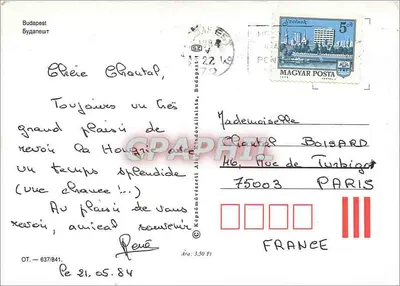 Budapest
Будапешт
Chère Chantal,
Toujours un très
grand plaisir de
revoir la Hongrie avec
un temps splendide
(une chance!...)
Au plaisir de vous
revoir, amical souvenir
René
OT. — 637/841.
Le 21.05.84
Ára: 3,50 Ft
Képzőművészeti Alap Kiadóvállalata, Budapest
22
5 Ft
MAGYAR POSTA
Mademoiselle
Chantal BOISARD
46, Rue de Turbigo
75003 PARIS
FRANCE
CPAPHIL